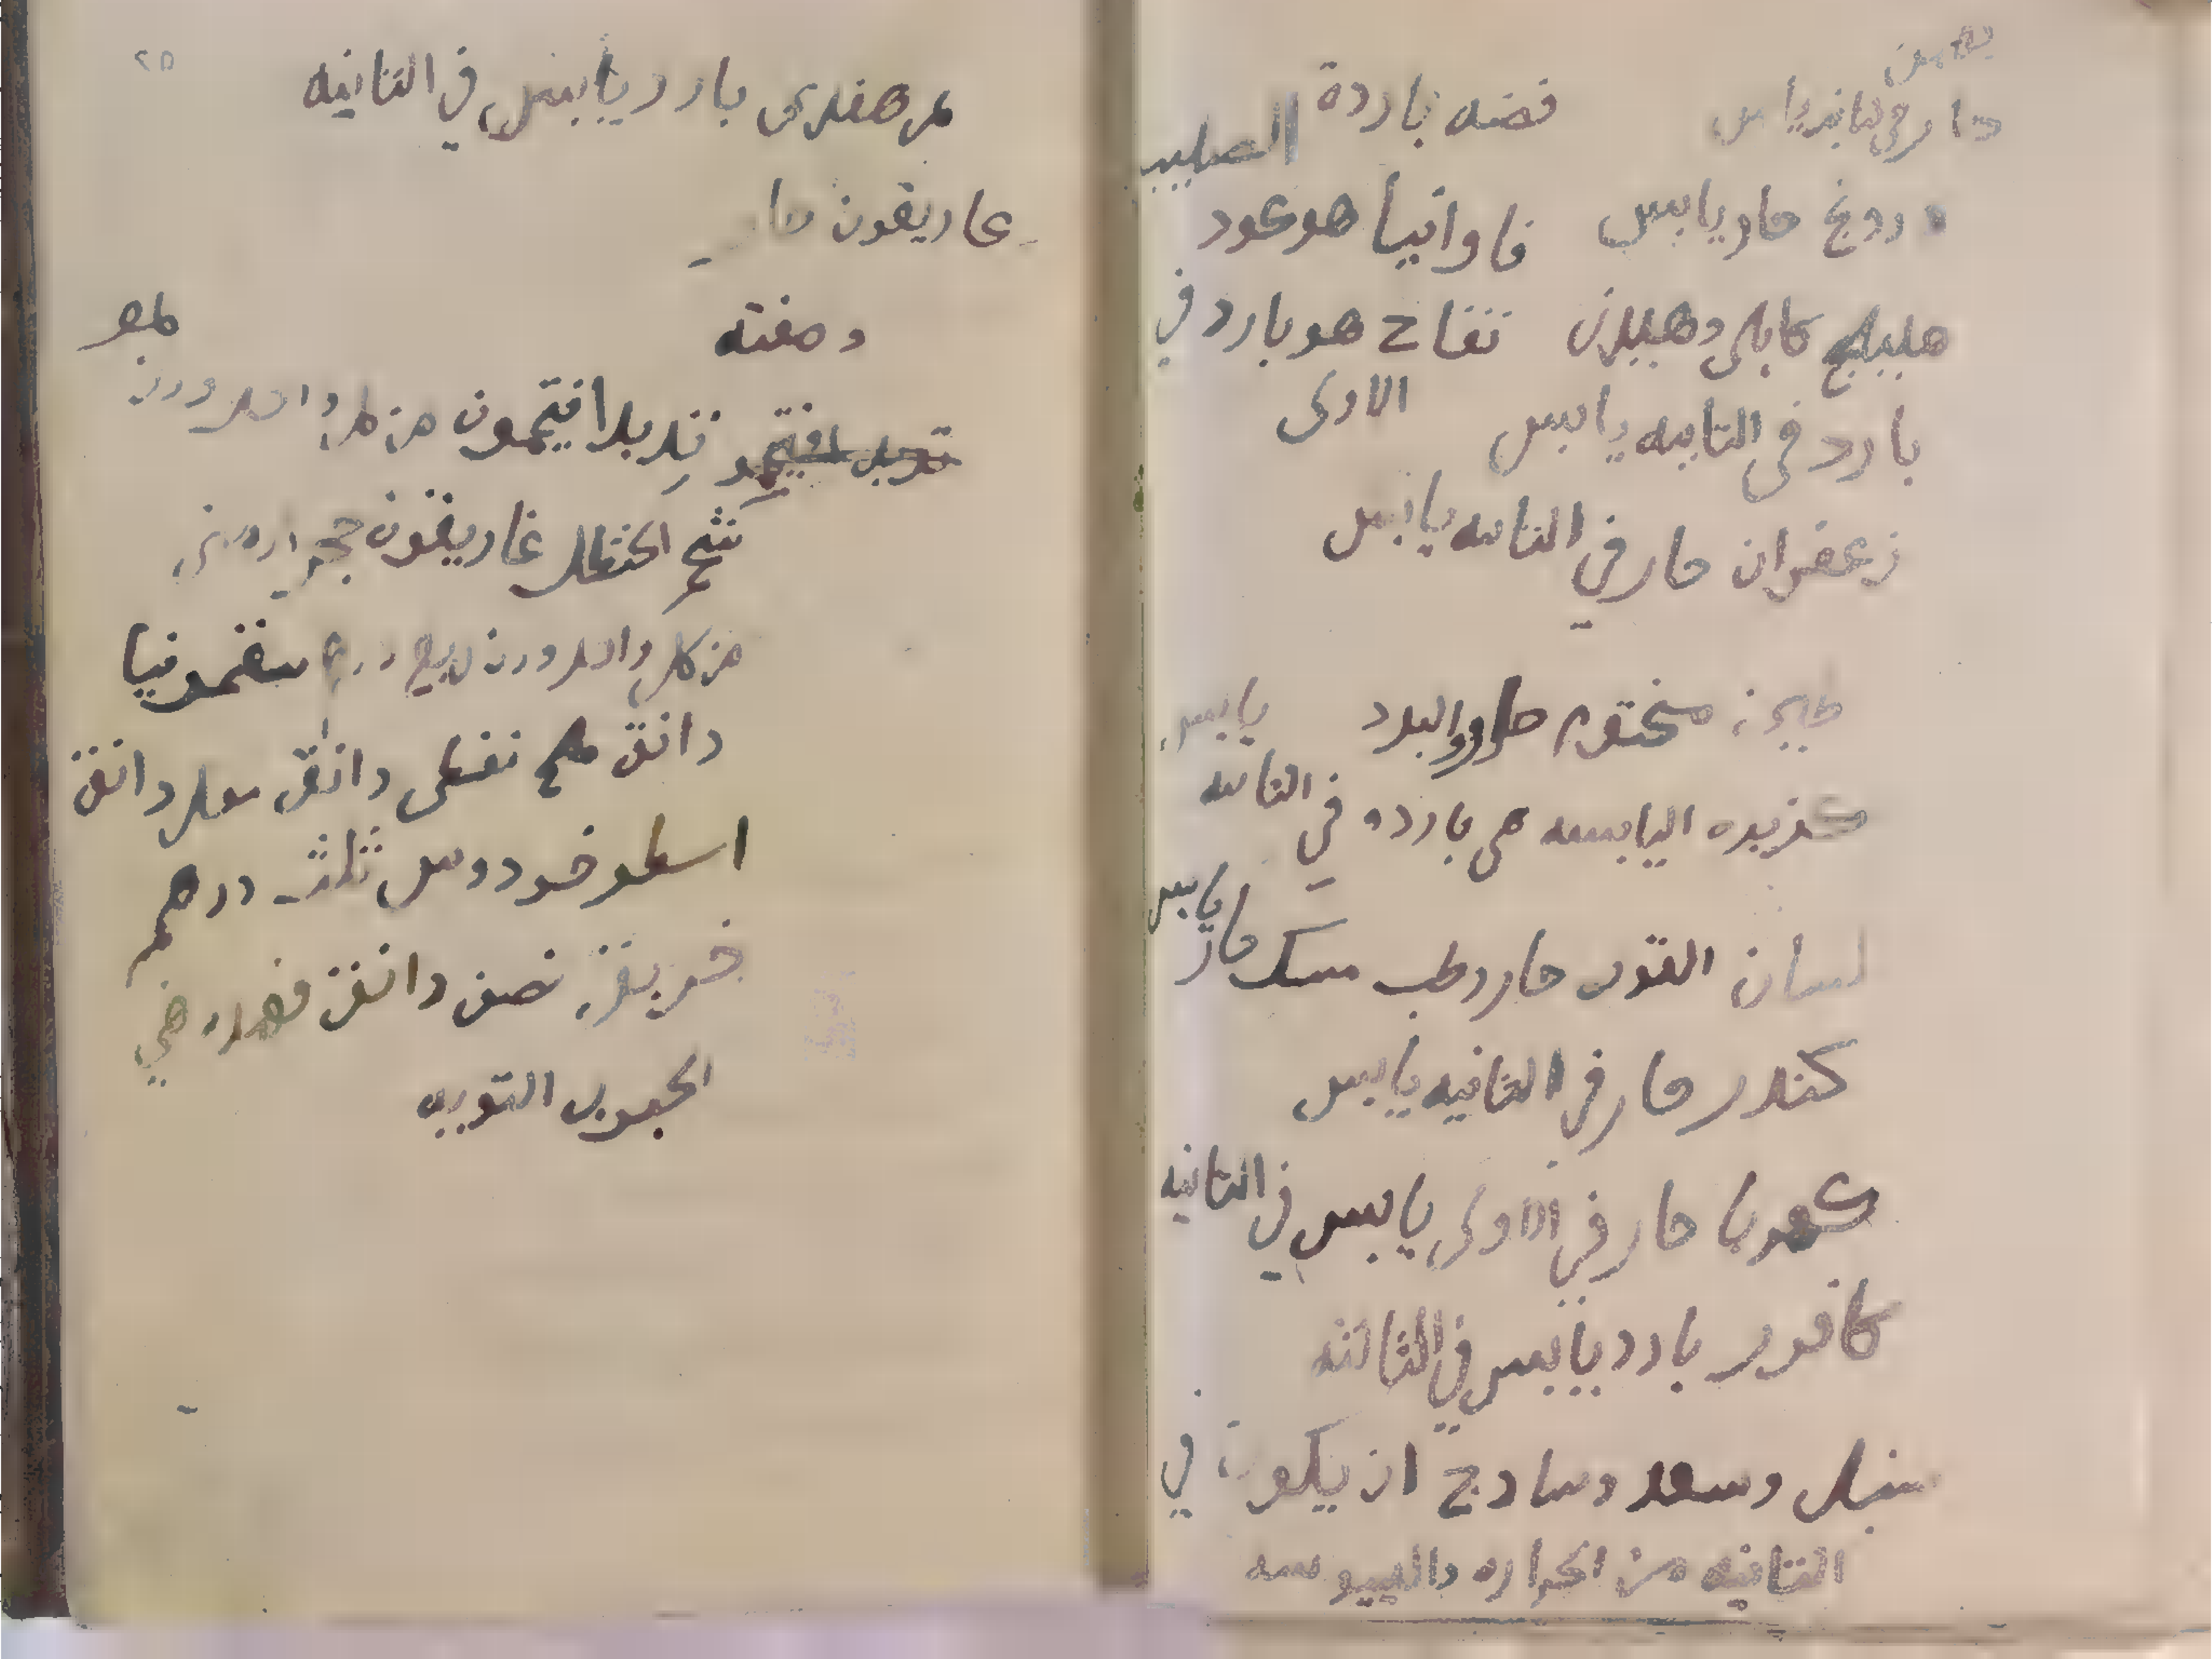 بهمن
حار في الثانيه يابس فضه باردة
دروج حار يابس فاوانيا هو عود الصليب
هليلج كابلى وهليلج تفاح هو بارد في الاولى
بارد في الثانيه يابس
زعفران حار في الثانيه يابس
طين مختوم
كزبره اليابسه هى بارده في الثانيه يابس
لسان الثور حار رطب مسك حار يابس
كندر حار في الثانيه يابس
كهربا حار في الاولى يابس في الثانيه
كافور بارد يابس في الثالثه
سنبل وسعد وسادج ان يكون في
الثانيه من الحراره واليبوسه
٢٥
تمر هندى بارد يابس في الثانيه
غاريقون حار
وصفته
تربد افتيمون من كل واحد وزن
شحم الحنظل غاريقون حجر ارمني
من كل واحد وزن ربع درهم سقمونيا
دانق ملح نفطى دانق مقل دانق
اسطوخودوس ثلث درهم
خربق نصف دانق فهذه هي
الحبوب القويه